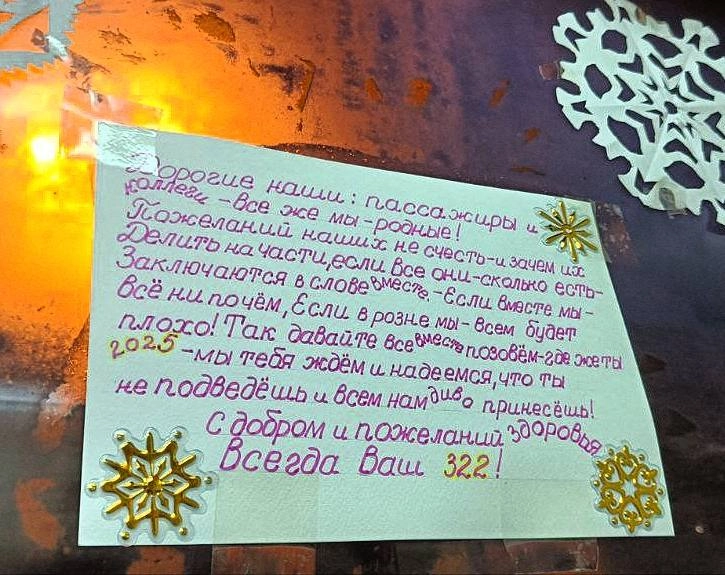 Дорогие наши: пассажиры и
коллеги - все же мы - родные!
Пожеланий наших не счесть - и зачем их
Делить на части, если все они - сколько есть -
Заключаются в слове вместе. - Если вместе мы -
всё ни почём, Если в розне мы - всем будет
плохо! Так давайте все вместе позовём - где же ты
2025 - мы тебя ждём и надеемся, что ты
не подведёшь и всем нам диво принесёшь!
С добром и пожеланий здоровья
Всегда Ваш 322!